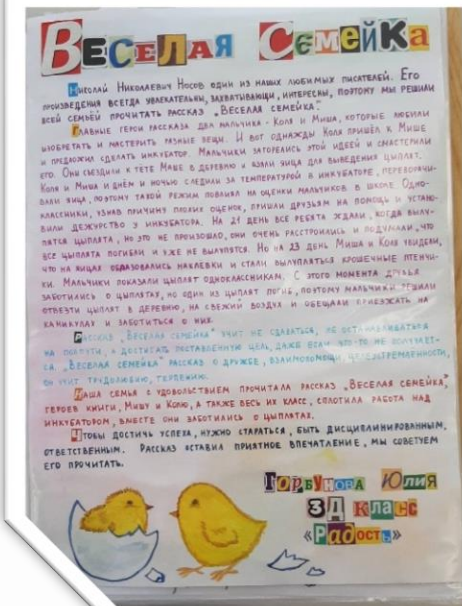 Веселая Семейка
Николай Николаевич Носов один из наших любимых писателей. Его
произведения всегда увлекательны, захватывающи, интересны, поэтому мы решили
всей семьёй прочитать рассказ „Веселая семейка".
Главные герои рассказа два мальчика - Коля и Миша, которые любили
изобретать и мастерить разные вещи. И вот однажды Коля пришёл к Мише
и предложил сделать инкубатор. Мальчики загорелись этой идеей и смастерили
его. Они съездили к тете Маше в деревню и взяли яица для выведения цыплят.
Коля и Миша днём и ночью следили за температурой в инкубаторе, переворачи-
вали яица, поэтому такой режим повлиял на оценки мальчиков в школе. Одно-
классники, узнав причину плохих оценок, пришли друзьям на помощь и устано-
вили дежурство у инкубатора. На 21 день все ребята ждали, когда вылу-
пятся цыплята, но это не произошло, они очень расстроились и подумали, что
все цыплята погибли и уже не вылупятся. Но на 23 день Миша и Коля увидели,
что на яицах образовались наклевки и стали вылупляться крошечные птенчи-
ки. Мальчики показали цыплят одноклассникам. С этого момента друзья
заботились о цыплятах, но один из цыплят погиб, поэтому мальчики решили
отвезти цыплят в деревню, на свежий воздух и обещали приезжать на
каникулах и заботиться о них.
Рассказ „Веселая семейка" учит не сдаваться, не останавливаться
на полпути, а достигать поставленную цель, даже если что-то не получает-
ся. „Веселая семейка" рассказ о дружбе, взаимопомощи, целеустремленности,
он учит трудолюбию, терпению.
Наша семья с удовольствием прочитала рассказ „Веселая семейка",
героев книги, Мишу и Колю, а также весь их класс, сплотила работа над
инкубатором, вместе они заботились о цыплятах.
Чтобы достичь успеха, нужно стараться, быть дисциплинированным,
ответственным. Рассказ оставил приятное впечатление, мы советуем
его прочитать.
Горбунова Юлия
3Д класс
«Радость»